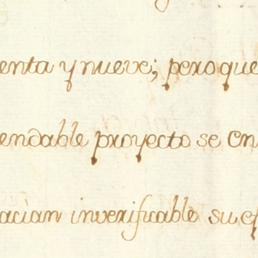 enta y nueve; pero que
endable proyecto se en
acian inverificable su ef